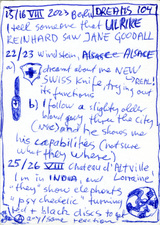 15/16 VIII 2023 Berlin DREAMS 104
I tell someone that ULRIKE
REINHARD saw JANE GOODALL
22/23 Windstein, ALSACE
a) dreamt about me NEW
SWISS knife, trying out
its functions REAL!
b) I follow a slightly older
blong guy thru the city
(NYC) and he shows me
his capabilities (not sure
what they where)
25/26 VIII Chateau d'Altville
I'm in INDIA, and Lorraine
"they" show elephants
"psychedelic" turning
red + black discs to get
a any/some reaction